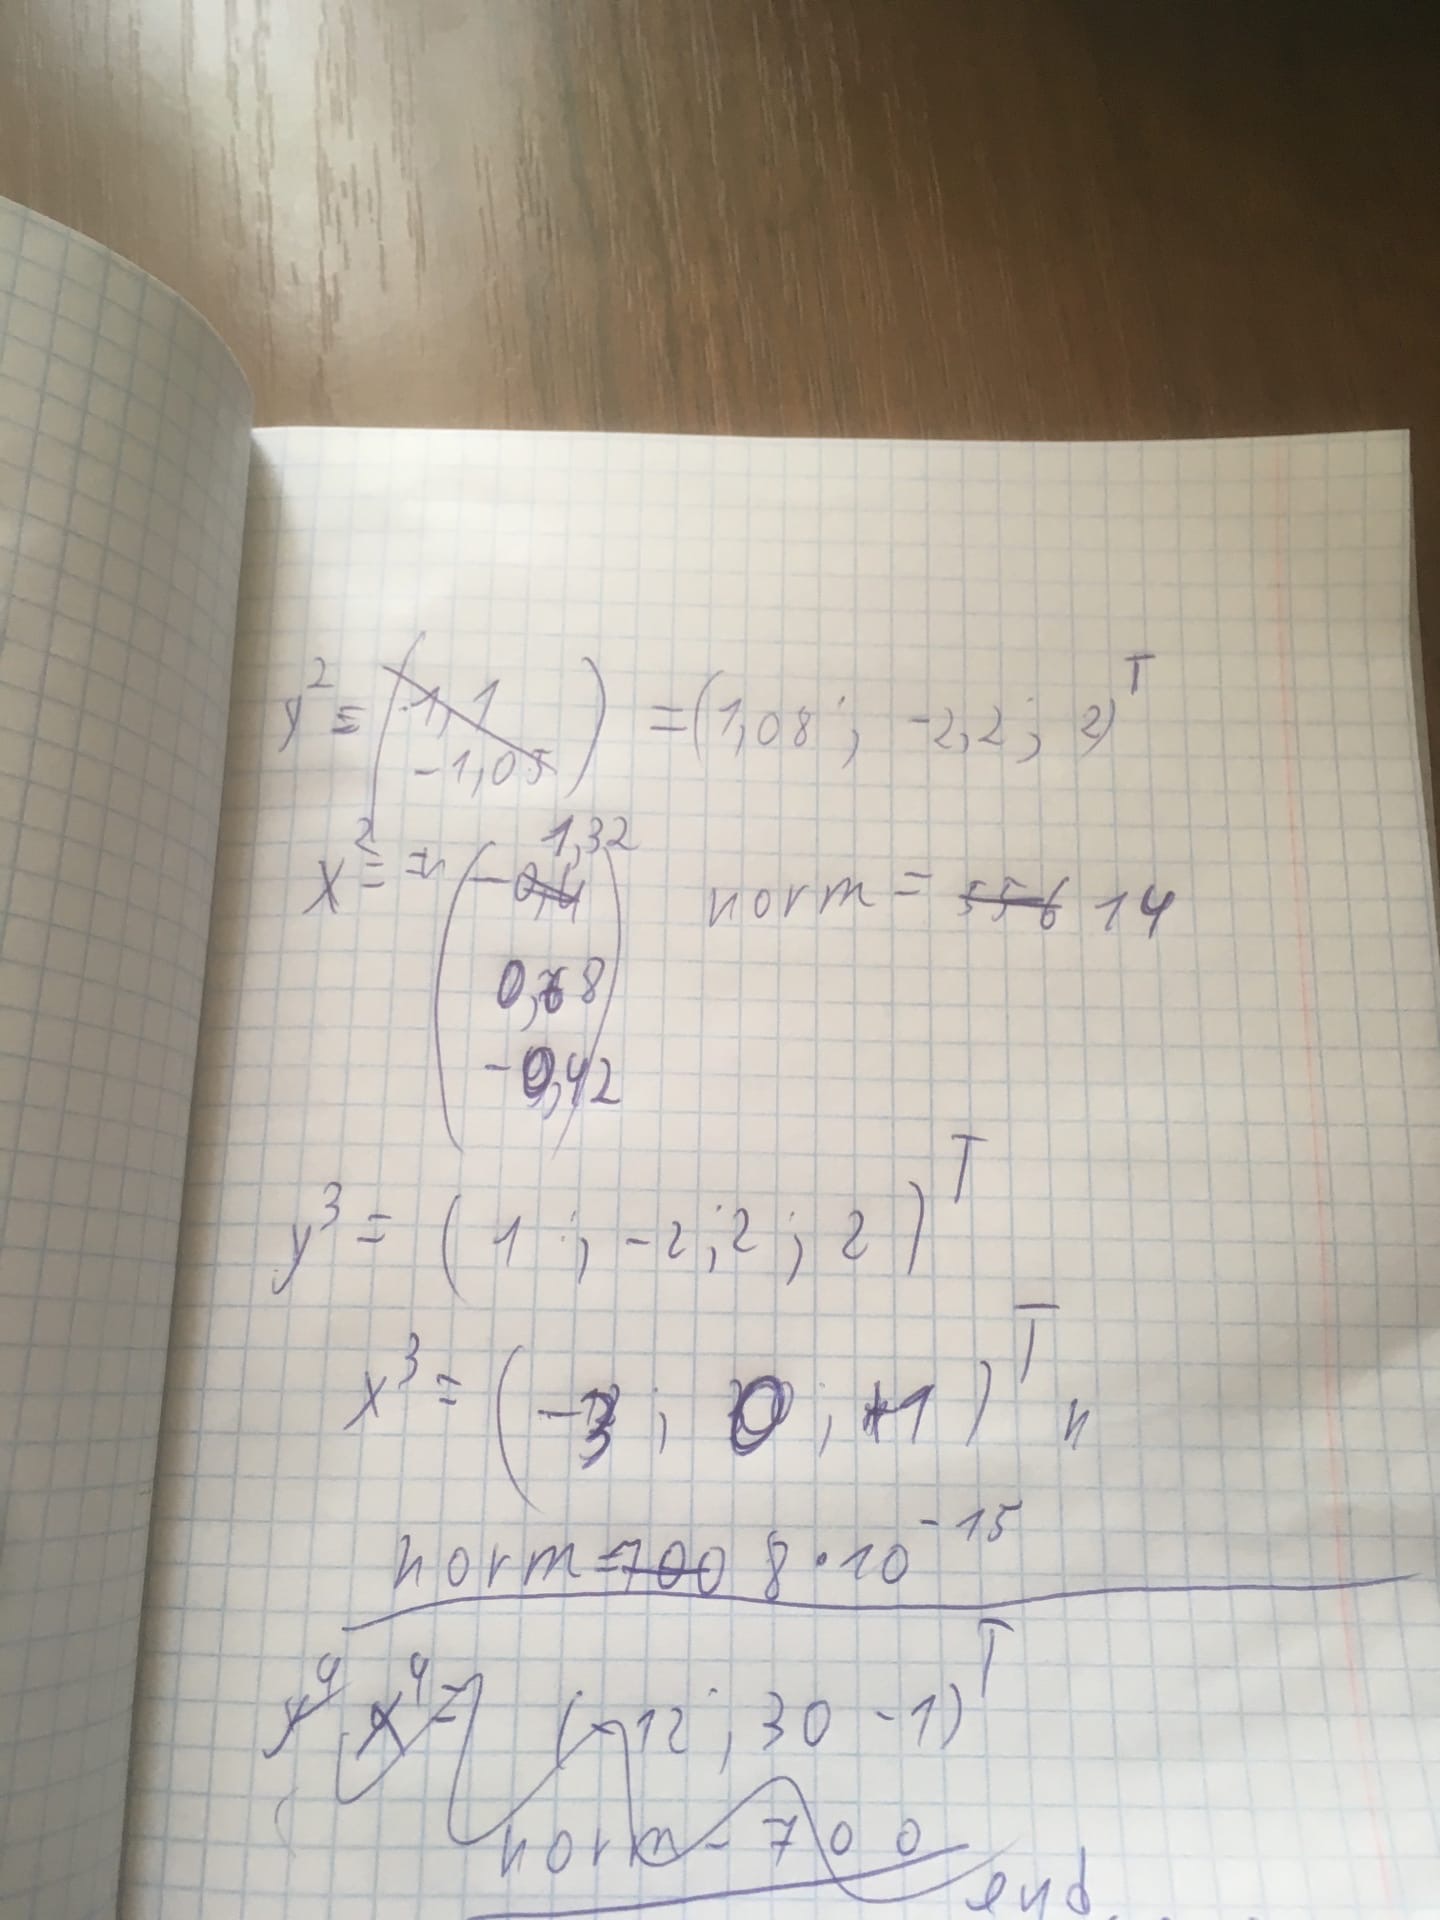 y² = ( 1,1 ) = (1,08 ; -2,2 ; 2)ᵀ
-1,05
1,32
x² = = ( -0,4 ) norm = 556 14
0,78
-0,42
y³ = ( 1 ; -2,2 ; 2 )ᵀ
x³ = ( -3 ; 0 ; +1 )ᵀ
norm = 700 8 · 10⁻¹⁵
y⁴ x⁴ = ( -12 ; 30 -1)ᵀ
norm - 700
end